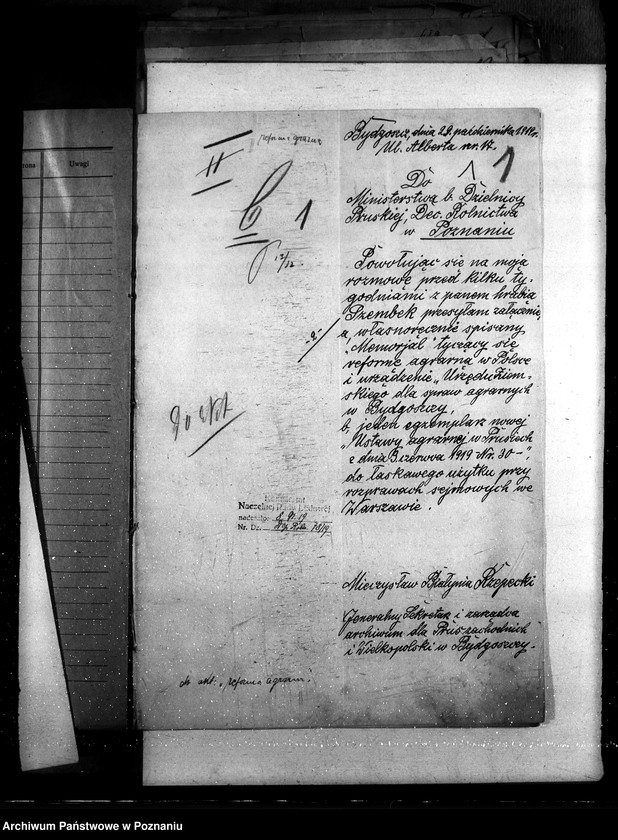 rona
Uwagi
reforma agrarna
II
C 1
12/12.
-2-
Do akt
Bydgoszcz, dnia 29. października 1919r.
Ul. Alberta nr. 17.
1
Do
Ministerstwa b. Dzielnicy
Pruskiej, Dec. Rolnictwa
w Poznaniu
Powołując się na moją
rozmowę przed kilku ty-
godniami z panem hrabią
Szembek przesyłam załącznie,
a, własnoręcznie spisany
"Memorjał" tyczący się
reformę agrarną w Polsce
i urządzenie "Urzędu Ziem-
skiego dla spraw agrarnych
w Bydgoszczy,
b, jeden egzemplarz nowej
"Ustawy agrarnej w Prusiech
z dnia 3 czerwca 1919 Nr. 30-",
do łaskawego użytku przy
rozprawach sejmowych we
Warszawie.
Komisarjat
Naczelnej Rady Ludowej
nadeszło:
Nr. Dz.
Mieczysław Białynia Rzepecki
Generalny Sekretarz i zarządca
archiwum dla Prus zachodnich
i Wielkopolski w Bydgoszczy.
do akt: "reforma agrarn".
Archiwum Państwowe w Poznaniu